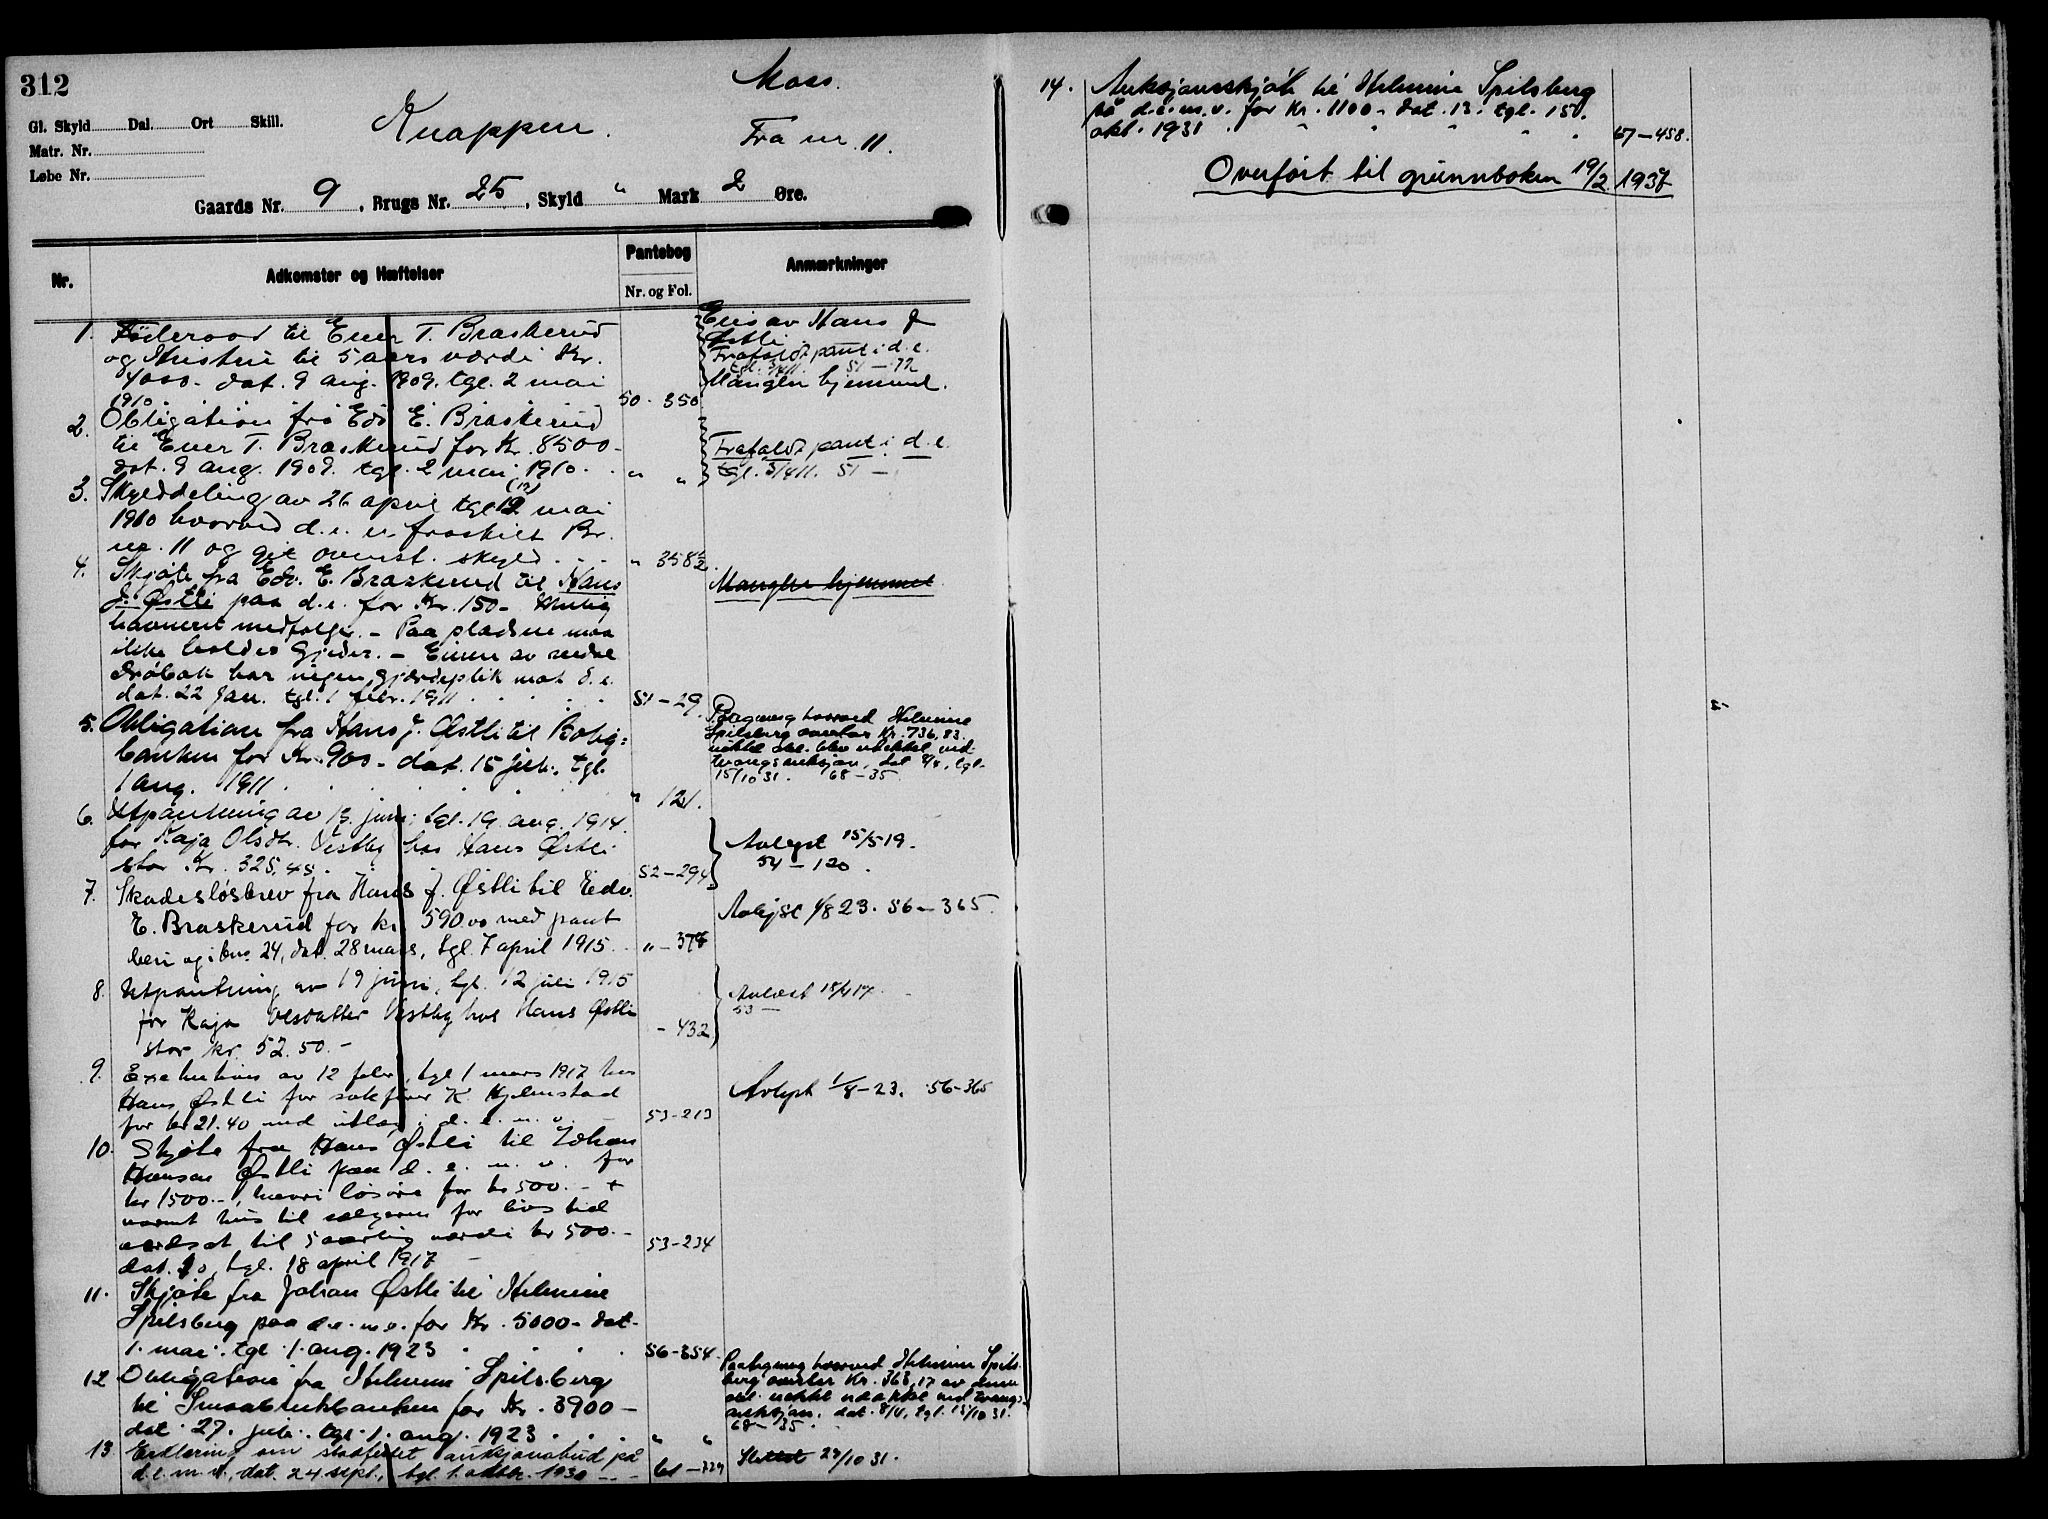 312
Moss.
Gl. Skyld Dal. Ort Skill.
Knappen.
Fra nr. 11.
Matr. Nr.
Løbe Nr.
Gaards Nr. 9, Brugs Nr. 25, Skyld " Mark 2 Øre.
Nr. Adkomster og Hæftelser Pantebog Nr. og Fol. Anmærkninger
1. Føderaad til Ener T. Braskerud
og Kristine til 5 aars værdi Kr.
4000- dat. 9 aug. 1909. tgl. 2 mai
1910. 50-350
Eies av Hans J
Østli
Frafaldt pant i d.e.
tgl. 3/4 11. 51-72
Mangler hjemmel.
2. Obligation fra Edv. E. Braskerud
til Ener T. Braskerud for Kr. 8500-
dat. 9 aug. 1909. tgl. 2 mai 1910. " "
Frafaldt pant i d.e.
tgl. 3/4 11. 51-
3. Skylddeling av 26 april tgl 12 (12) mai
1910 hvorved d.e. er fraskilt Br.
nr. 11 og git ovenst. skyld. " 358 1/2
4. Skjøte fra Edv. E. Braskerud til Hans
J. Østli paa d.e. for Kr. 150-
havneret medfølger. - Paa pladsene maa
ikke holdes Gjeder. - Eieren av
har ingen gjerdeplikt mot d.e.
dat. 22 Jan. tgl. 1 febr. 1911 51-29
Mangler hjemmel
5. Obligation fra Hans J. Østli til Bolig-
banken for Kr. 900- dat. 15 juli, tgl.
1 aug. 1911. " 121.
Paategning hvorved Helmine
Spilsberg overtar Kr. 736,83.
hvilket bel. blev udækket ved
tvangsauksjon, dat 8/8, tgl.
15/10 31. 68-35
6. Utpantning av 13. juni, tgl. 19. aug. 1914.
for Kaja Olsdtr. Vestby hos Hans Østli
stor Kr. 325,45. 52-294
Avlyst 15/5 19.
54-120.
7. Skadesløsbrev fra Hans J. Østli til Edv.
E. Braskerud for kr. 590.00 med pant
heri og i bno 24, dat. 28 mars, tgl. 7 april 1915. "-378
Avlyst 1/8 23. 56-365.
8. Utpantning av 19 juni, tgl. 12 juli 1915
for Kaja Olsdatter Vestby hos Hans Østli
stor kr. 52.50.- -432
Avlæst 18/4 17.
53-
9. Exekution av 12 febr, tgl 1 mars 1917 hos
Hans Østli for sakfører K Hjelmstad
for kr 21.40 med utlæg i d. e. m. v. 53-213
Avlyst 1/8-23. 56-365
10. Skjøte fra Hans Østli til Johan
Hansen Østli paa d. e. m. v. for
kr 1500.-, herav i løsøre for kr 500.- +
varmt hus til sælgeren for livstid
værdsat til 5 aarlig værdi kr 500.-
dat. 10, tgl. 18 april 1917 - 53-234
11. Skjøte fra Johan Østli til Helmine
Spilsberg paa d.e.m.v. for Kr. 5000- dat.
1. mai. tgl. 1. aug. 1923 56-354.
12 Obligation fra Helmine Spilsberg
til Smaabrukbanken for Kr. 3900-
dat. 27. juli. tgl. 1. aug. 1923. " "
Paategning hvorved Helmine Spils-
berg overtar Kr. 363,17 av denne
obl. hvilket udækket ved tvangs-
auksjon. dat. 8/8, tgl. 15/10 31.
68-35.
13. Erklæring om stadfestet auksjonsbud på
d.e.m.v., dat. 24 sept., tgl. 1. oktbr. 1930 -- 61-729
Slettet 24/10 31.
14. Auksjonsskjøte til Helmine Spilsberg
på d.e.m.v. for Kr. 1100- dat. 13. tgl. 15.
okt. 1931 67-458.
Overført til grunnboken 19/2 1937